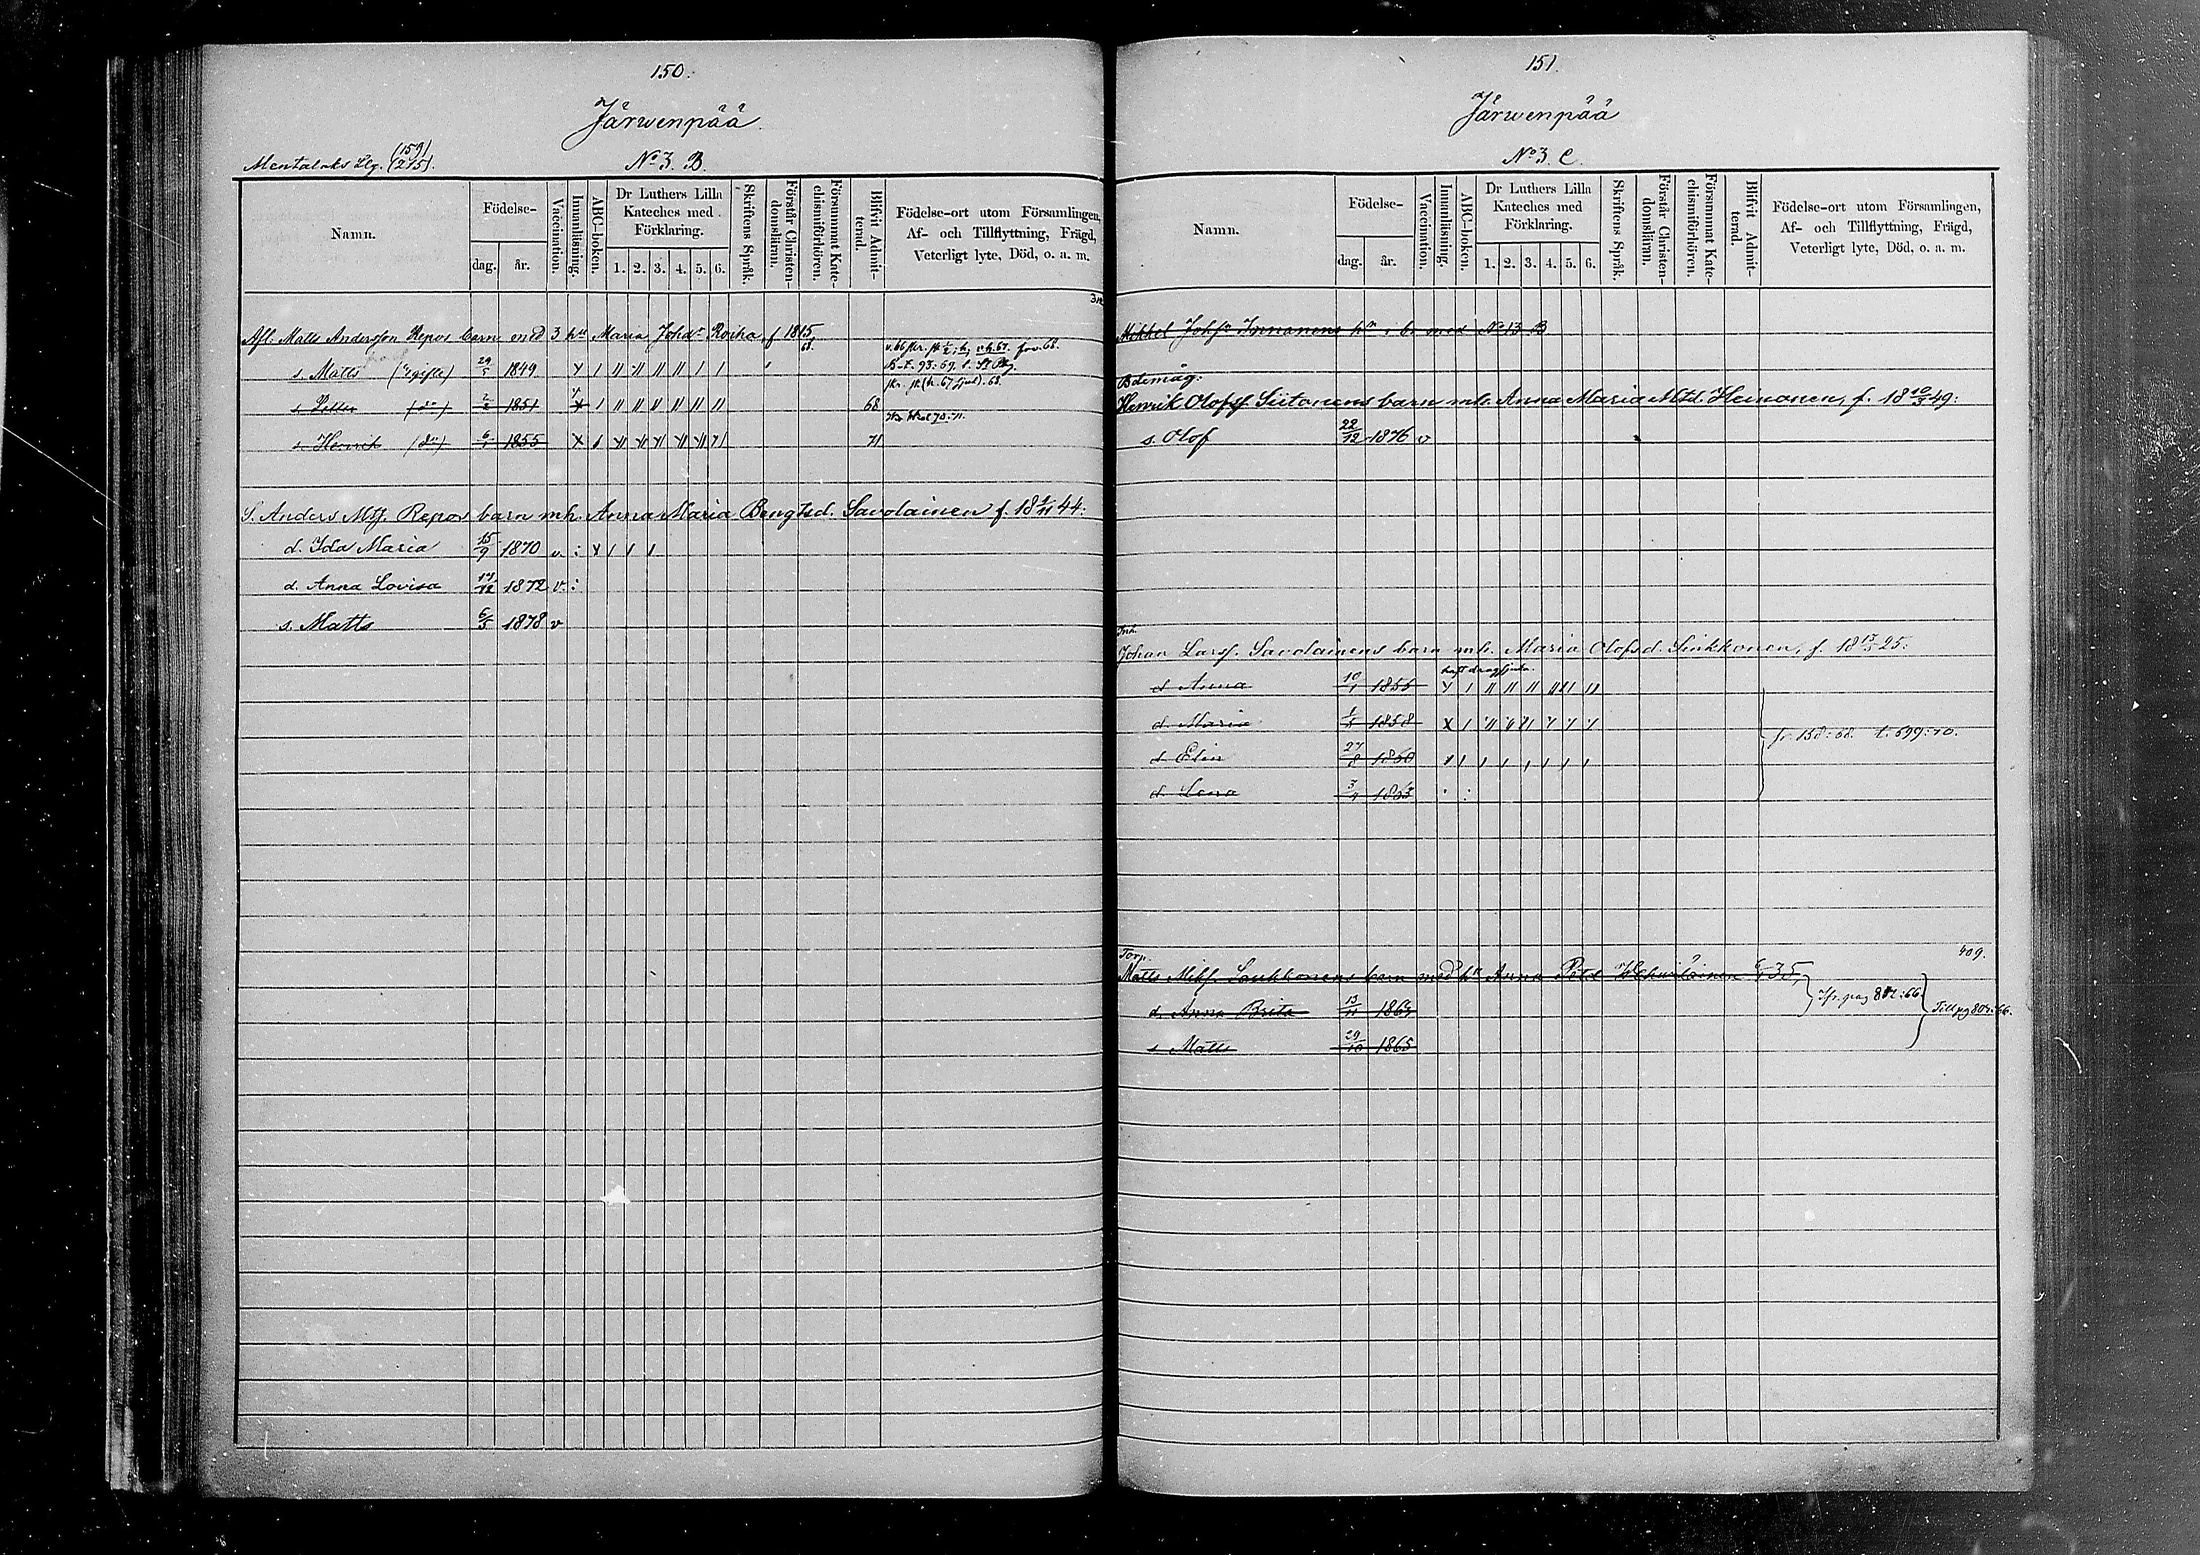 150.
Järwenpää
Mentalaks Llg. (159) (215).
No 3. B.
Namn.
Födelse-
dag. år.
Vaccination.
Innanläsning.
ABC-boken.
Dr Luthers Lilla Kateches med Förklaring.
1. 2. 3. 4. 5. 6.
Skriftens Språk.
Förstår Christendomslärn.
Försummat Katechismiförhören.
Blifvit Admitterad.
Födelse-ort utom Församlingen,
Af- och Tillflyttning, Frägd,
Veterligt lyte, Död, o. a. m.
Afl. Matts Andersson Repos barn med 3 hu Maria Johdr Roiha, f 1815
68.
s. Matts 29/5 1849
s. Petter (do) 2/2 1851 68
s. Henrik (do) 6/1 1855 71
S. Anders Mtss. Repos barn mh. Anna Maria Bengtsd. Savolainen f. 18 1/11 44.
d. Ida Maria 15/9 1870 v.
d. Anna Lovisa 17/12 1872 v.
s. Matts 6/5 1878 v
151.
Järwenpää
No 3. C.
Namn.
Födelse-
dag. år.
Vaccination.
Innanläsning.
ABC-boken.
Dr Luthers Lilla Kateches med Förklaring.
1. 2. 3. 4. 5. 6.
Skriftens Språk.
Förstår Christendomslärn.
Försummat Katechismiförhören.
Blifvit Admitterad.
Födelse-ort utom Församlingen,
Af- och Tillflyttning, Frägd,
Veterligt lyte, Död, o. a. m.
Mikkel Johsn Innanens No 13 B
Bdemåg:
Henrik Olofss Siitonens barn mh. Anna Maria Mtd. Heinonen, f. 18 10/3 49:
s. Olof 22/12 1876 v
Inh.
Johan Larss. Savolainens barn mh. Maria Olofsd. Sinkkonen, f. 18 15/5 25:
d. Anna 10/1 1855
d. Maria 1858
d. Elin 27/8 1860
d. Lena 3/4 1863
fr. 158:68. t. 699:70.
409.
Torp.
Matts Miks. Laukkanens barn med hu Anna Petd 35,
d. Anna Brita 13/11 1864
s. Matts 29/10 1865